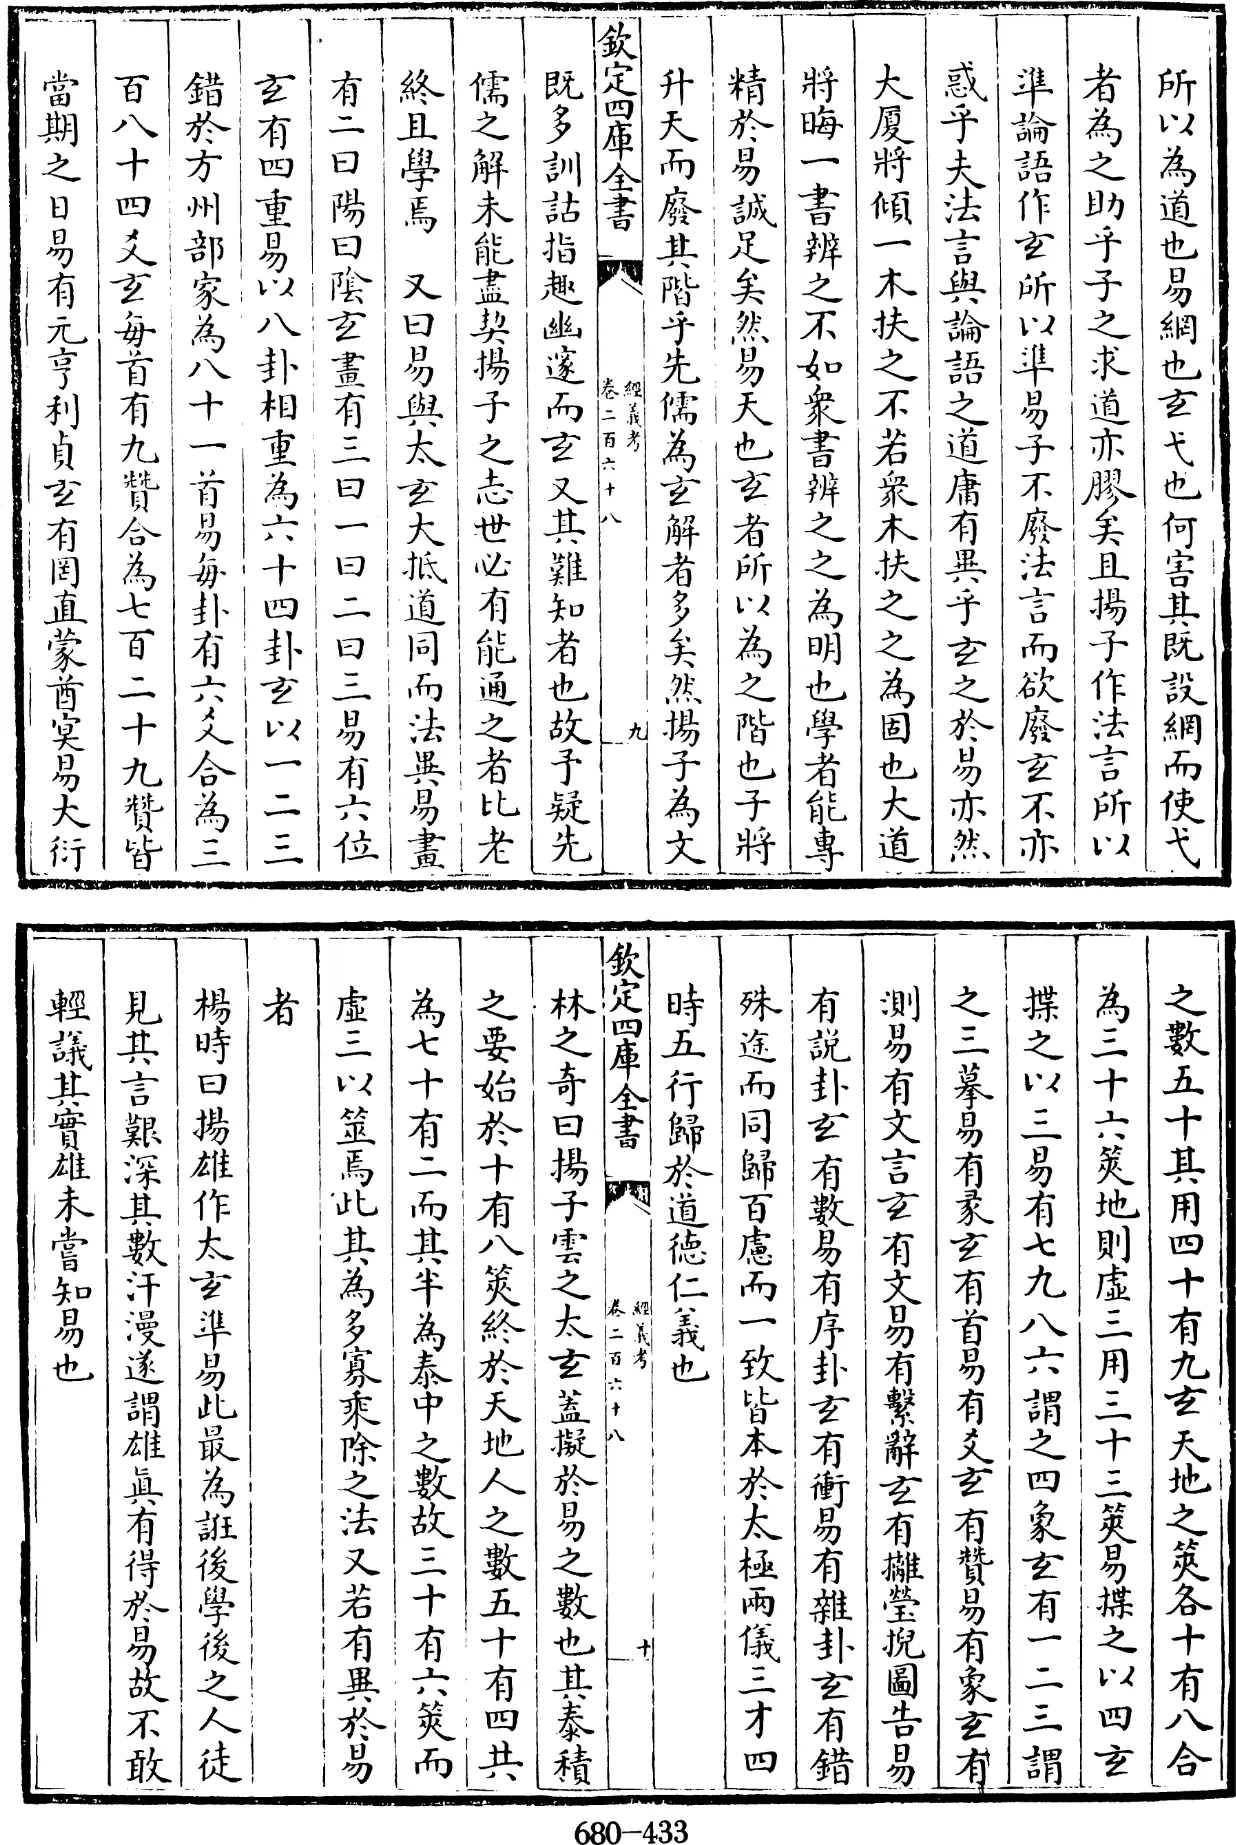 所以為道也易網也玄弋也何害其既設網而使弋
者為之助乎子之求道亦膠矣且揚子作法言所以
準論語作玄所以準易子不廢法言而欲廢玄不亦
惑乎夫法言與論語之道庸有異乎玄之於易亦然
大厦將傾一木扶之不若衆木扶之之為固也大道
將晦一書辨之不如衆書辨之之為明也學者能專
精於易誠足矣然易天也玄者所以為之階也子將
升天而廢其階乎先儒為玄解者多矣然揚子為文
欽定四庫全書
經義考
卷二百六十八
九
既多訓詁指趣幽邃而玄又其難知者也故予疑先
儒之解未能盡契揚子之志世必有能通之者比老
終且學焉　又曰易與太玄大抵道同而法異易畫
有二曰陽曰陰玄畫有三曰一曰二曰三易有六位
玄有四重易以八卦相重為六十四卦玄以一二三
錯於方州部家為八十一首易每卦有六爻合為三
百八十四爻玄每首有九贊合為七百二十九贊皆
當期之日易有元亨利貞玄有罔直蒙酋冥易大衍
之數五十其用四十有九玄天地之筴各十有八合
為三十六筴地則虛三用三十三筴易揲之以四玄
揲之以三易有七九八六謂之四象玄有一二三謂
之三摹易有彖玄有首易有爻玄有贊易有象玄有
測易有文言玄有文易有繫辭玄有攡瑩掜圖告易
有説卦玄有數易有序卦玄有衝易有雜卦玄有錯
殊途而同歸百慮而一致皆本於太極兩儀三才四
時五行歸於道德仁義也
欽定四庫全書
經義考
卷二百六十八
十
林之奇曰揚子雲之太玄蓋擬於易之數也其泰積
之要始於十有八筴終於天地人之數五十有四共
為七十有二而其半為泰中之數故三十有六筴而
虛三以筮焉此其為多寡乘除之法又若有異於易
者
楊時曰揚雄作太玄準易此最為誑後學後之人徒
見其言艱深其數汗漫遂謂雄眞有得於易故不敢
輕議其實雄未嘗知易也
680-433